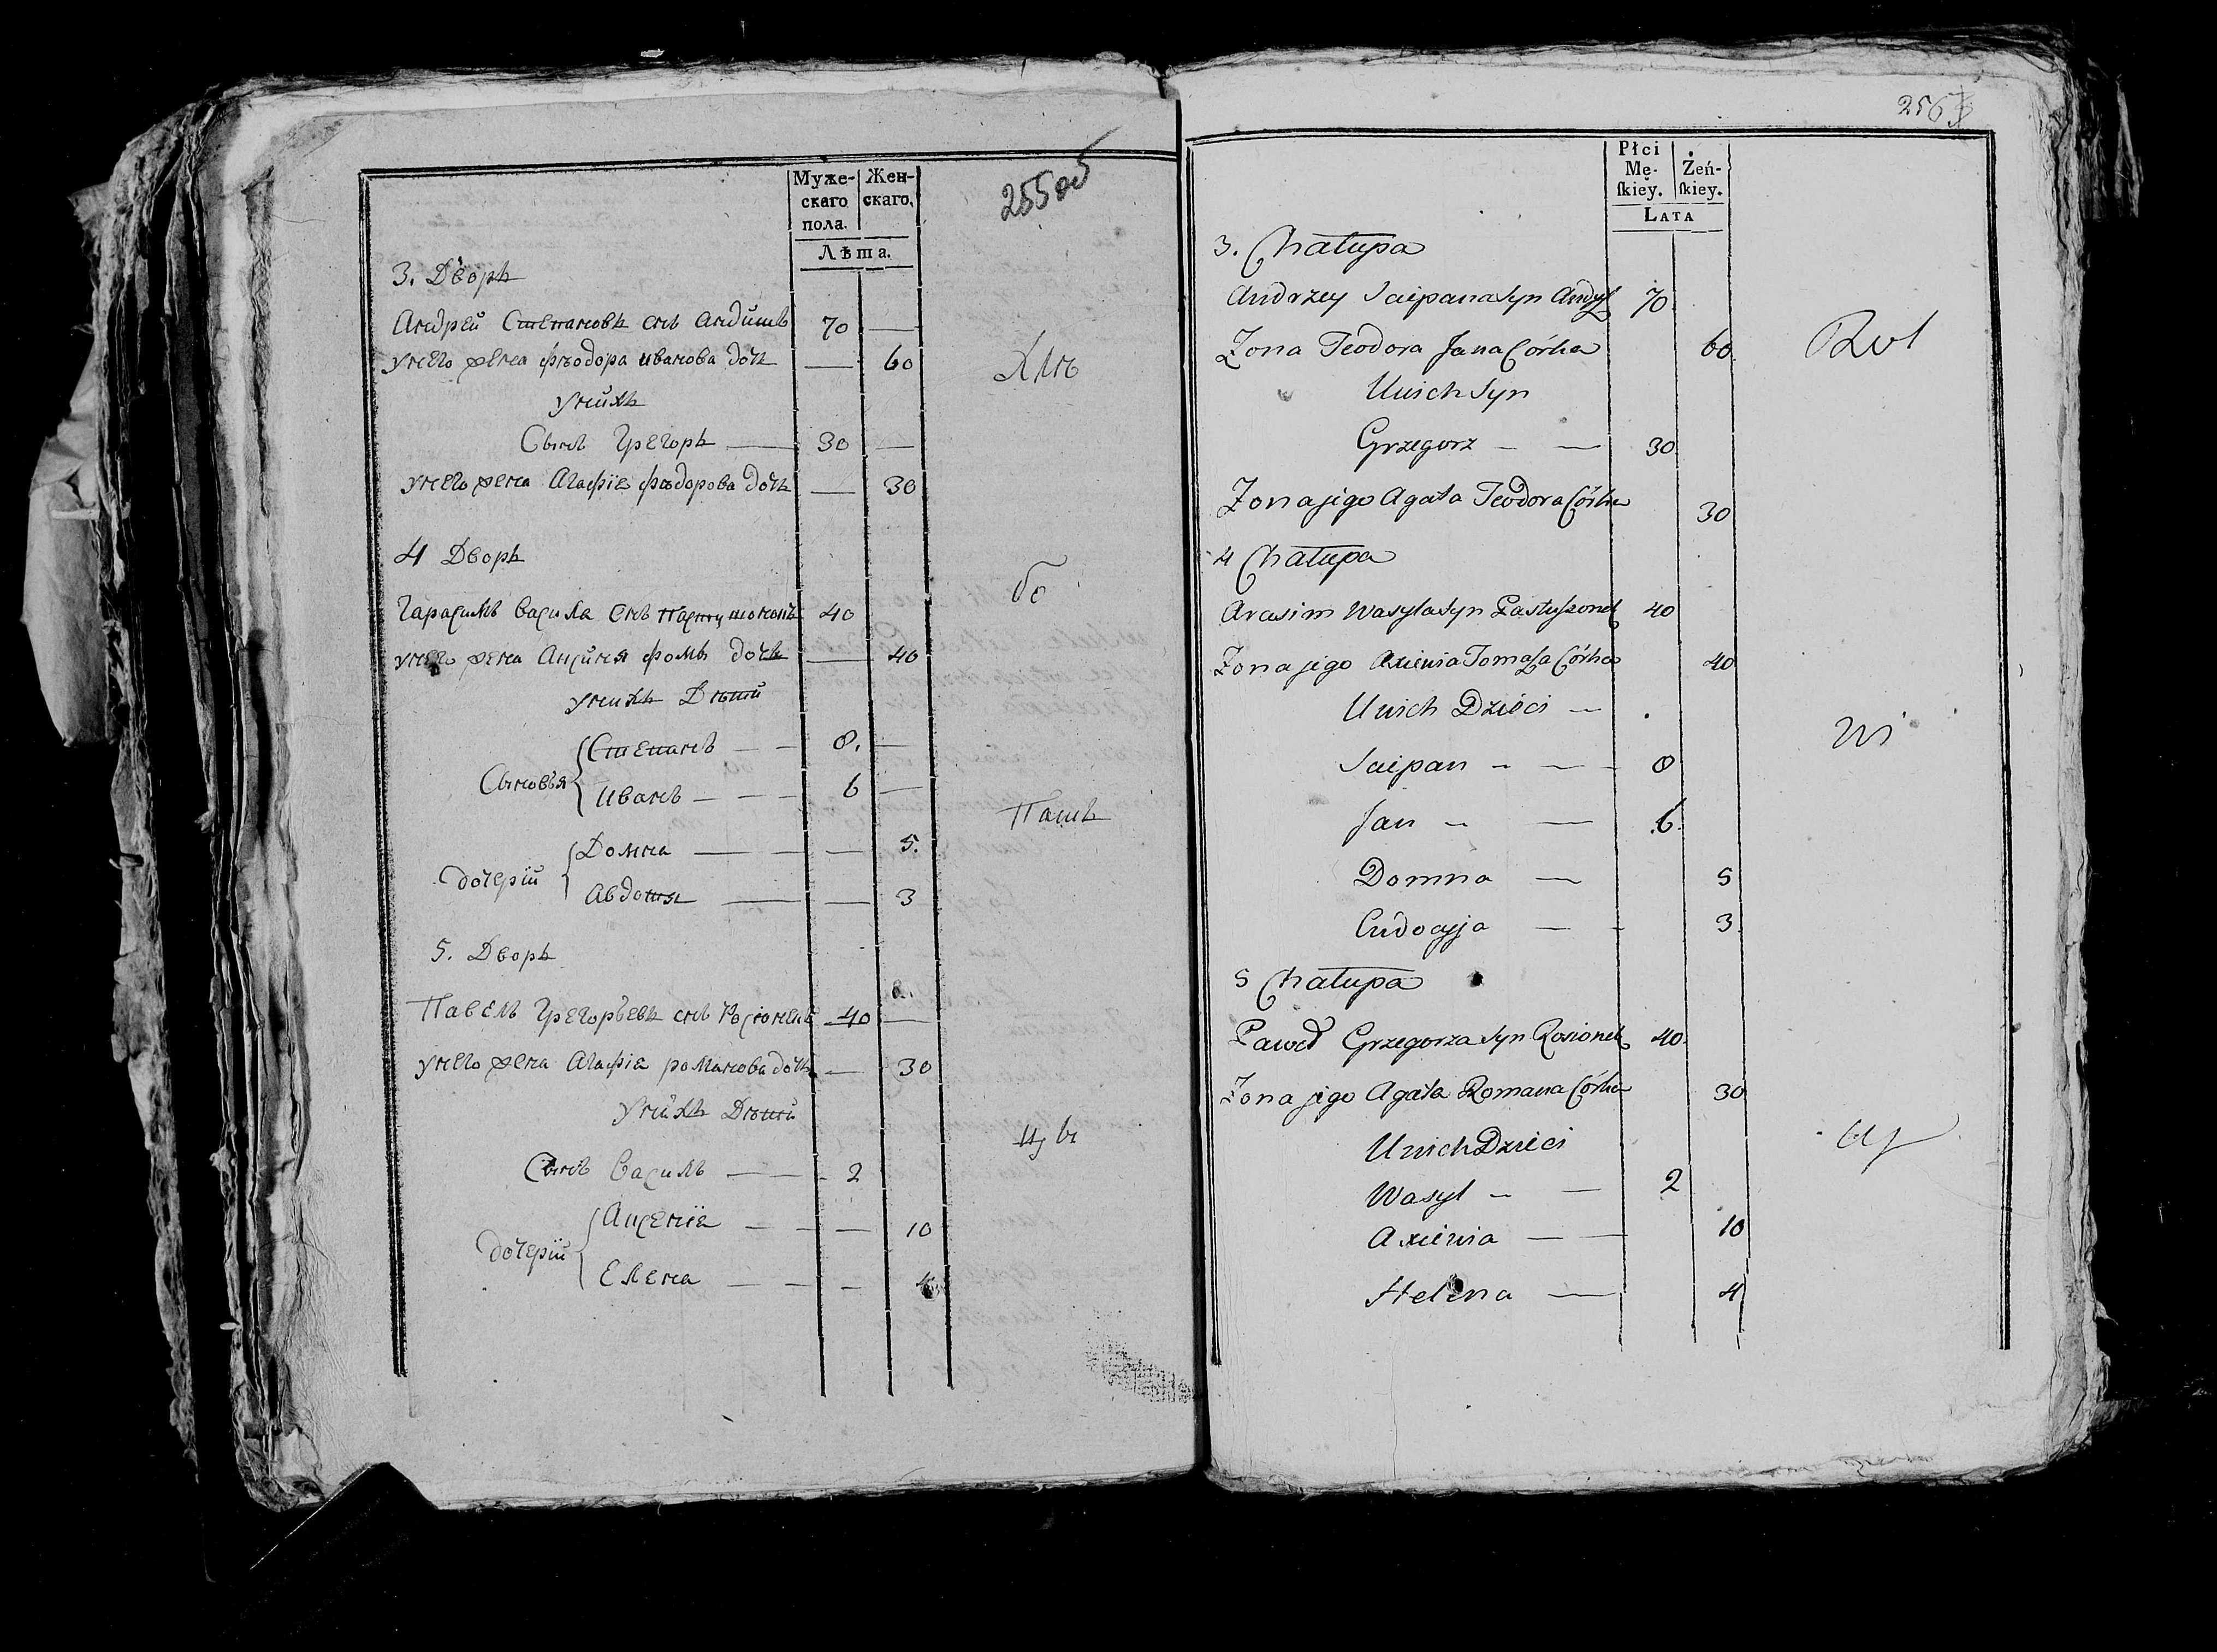 255об
Муже-
скаго
пола.
Жен-
скаго.
Лѣта.
3. Дворъ
Андрей Степановъ снъ Андишъ 70 —
унего жена Фѣодора иванова дочь — 60
Для
унихъ
Сынъ Грегоръ — 30 —
унего жена Агафiя Фѣдорова дочь — 30
4 Дворъ
Гарасимъ Василя снъ 40
бо
унего жена Анциня Фомы дочь — 40
унихъ Дѣти
Сыновья { Степанъ — — 8. —
Иванъ — — — 6 —
дочерiй { Домна — — 5.
Авдотя — — 3
5. Дворъ
Павелъ Грегорьевъ снъ Росiонекъ 40 —
унего жена Агафiя романова дочь — 30
унихъ Дѣти
Сынъ Василъ — 2
дочерiй { Анценiя — — — 10
Елена — — — 4
256
Płci
Mę-
ſkiey.
Żeń-
ſkiey.
LATA
3. Chałupa
Andrzey Sciepana Syn 70
Zona Teodora Jana Córka 60
Unich Syn
Grzegorz — — 30
Zona jego Agata Teodora Córka 30
4 Chałupa
Arasim Wasyla Syn Pastuszonek 40
Zona jego Axienia Tomasza Córka 40
Unich Dzieci —
Sciepan — — 8
Jan — — 6
Domna — 5
Eudocyja — — 3
5 Chałupa
Paweł Grzegorza Syn Rosionek 40
Zona jego Agata Romana Córka 30
Unich Dzieci
Wasyl — — 2
Axienia — — 10
Helena — 4